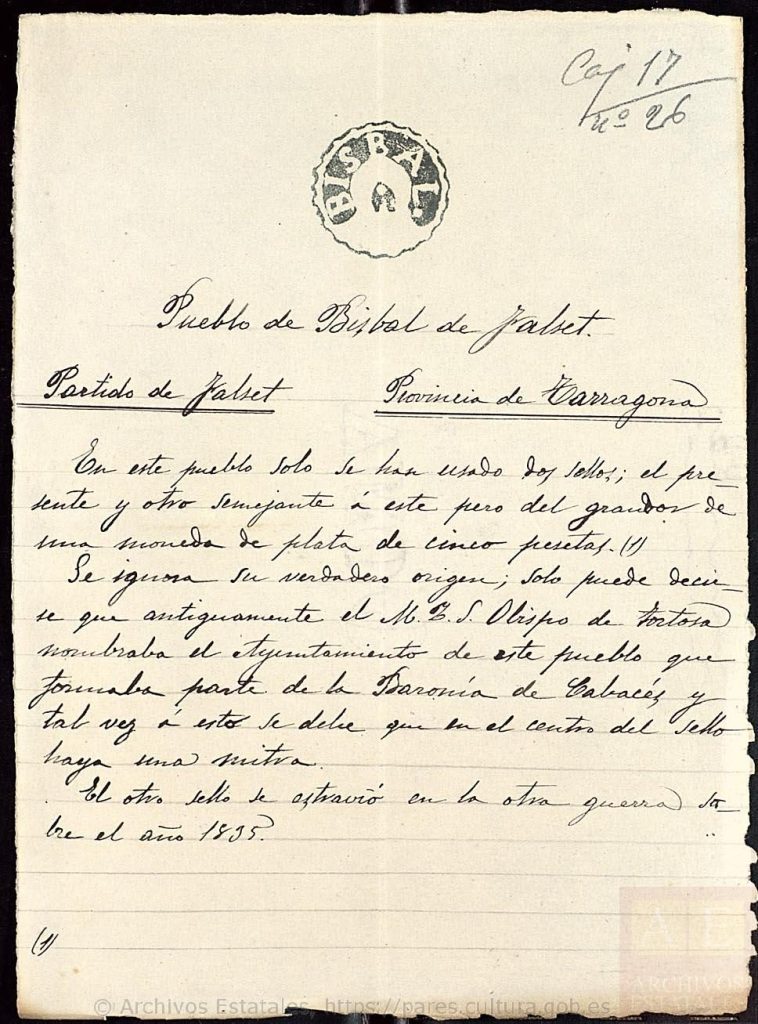 Caj 17
nº 26
BISBAL.
Pueblo de Bisbal de Falset.
Partido de Falset
Provincia de Tarragona
En este pueblo solo se han usado dos sellos; el pre-
sente y otro semejante á este pero del grandor de
una moneda de plata de cinco pesetas. (1)
Se ignora su verdadero origen; solo puede decir-
se que antiguamente el M. I. S. Obispo de Tortosa
nombraba el Ayuntamiento de este pueblo que
formaba parte de la Baronía de Cabacés y
tal vez á esto se debe que en el centro del sello
haya una mitra.
El otro sello se estravió en la otra guerra so-
bre el año 1835.
(1)
AE
ARCHIVOS
ESTATALES
© Archivos Estatales, https://pares.cultura.gob.es